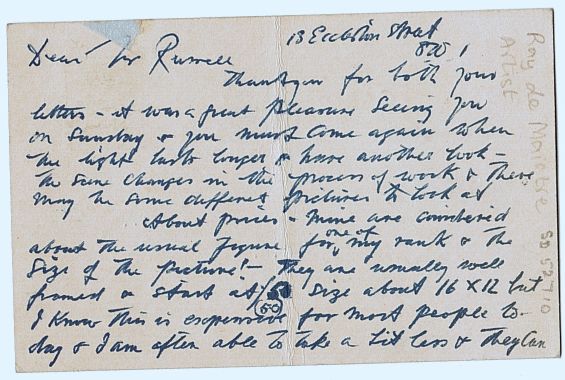 13 Eccleston Street
SW1
Dear Mr Russell
Thankyou for both your
letters - it was a great pleasure seeing you
on Sunday & you must come again when
the light lasts longer & have another look -
the same changes in the process of work & there
may be some different pictures to look at
About prices - mine are considered
about the usual figure for one of my rank & the
size of the picture! - They are usually well
framed & start at £50 (50) size about 16 x 12 but
I know this is expensive for most people to-
day & I am often able to take a bit less & they can
Roy de Maistre
Artist